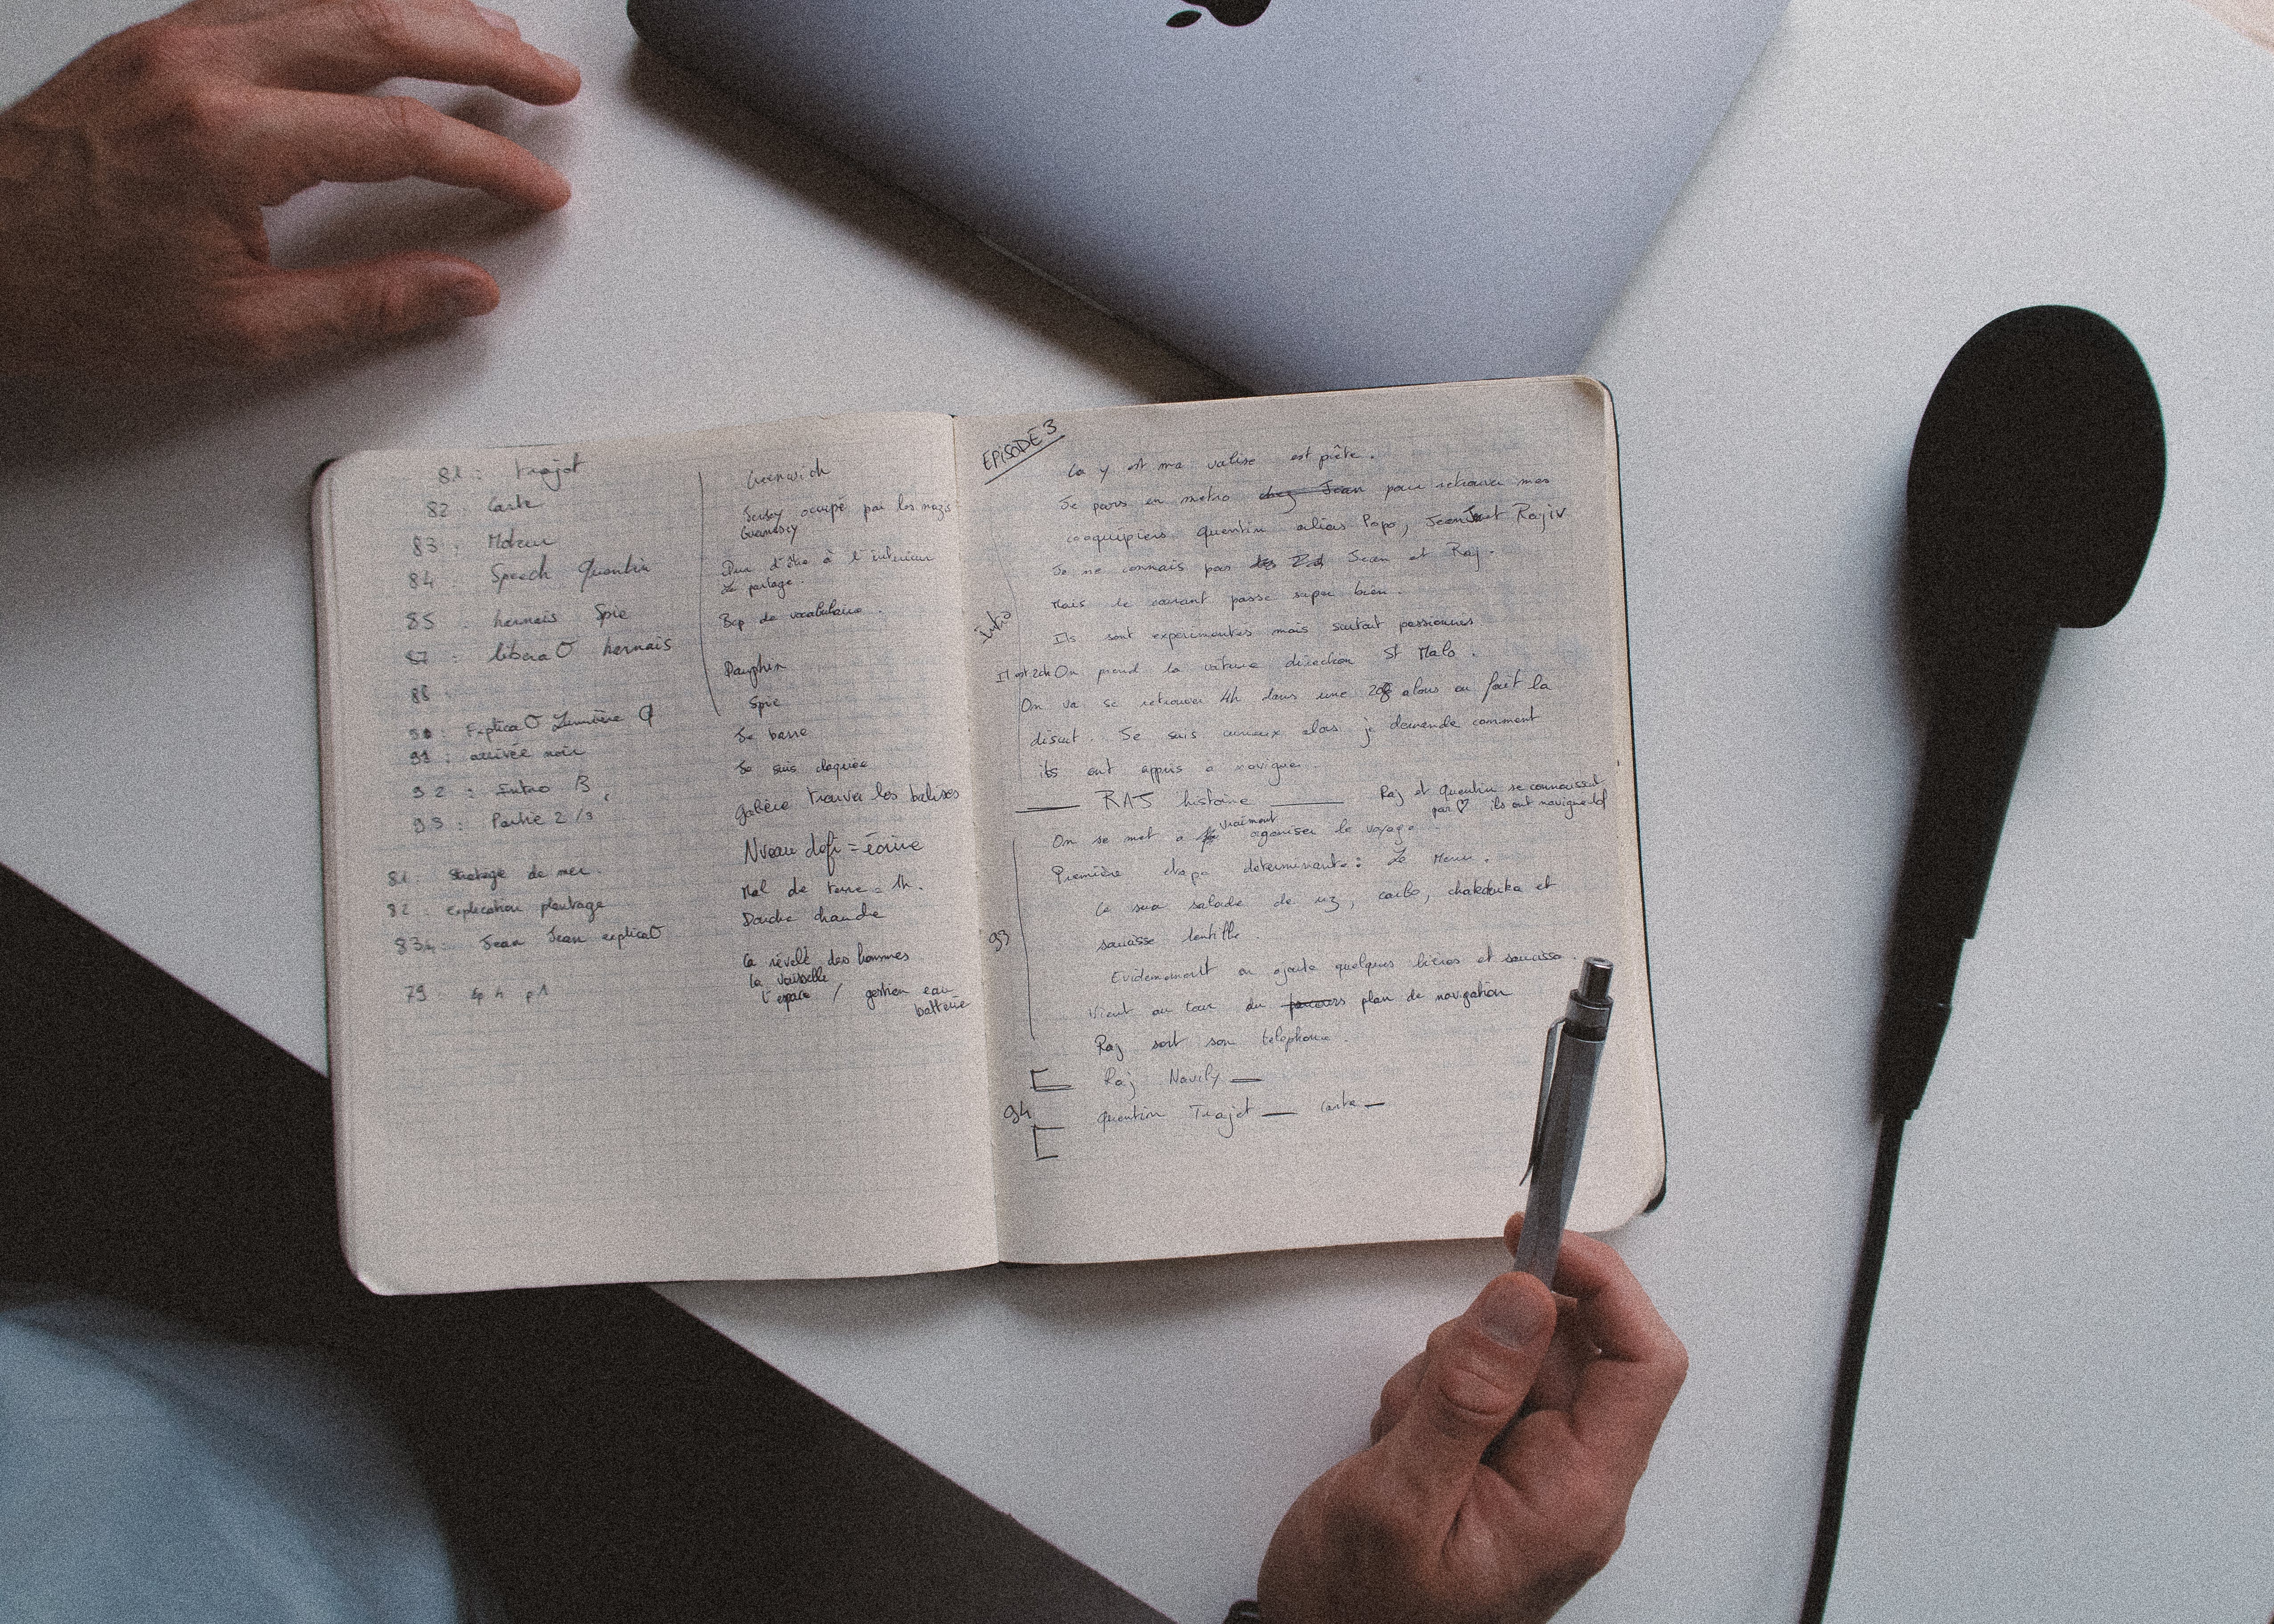 81 : trajet
82 : Carte
83 : Moteur
84 : Speech Quentin
85 : harnais Spie
87 : libera harnais
88
90 : Explica Lumière
91 : arrivée noir
92 : Intro 3
93 : Partie 2/3
81 : de mer.
82 : Explication plantage
83 : Jean Jean explica
79 : ep 4 p1
Greenwich
Jersey occupé par les nazis
Guernesey
Peur d'être à l'intérieur
Le partage.
Bcp de vocabulaire.
Dauphin
Spie
Je barre
Je suis claquée
galère trouver les balises
Niveau defi = écrire
Mal de terre = 1h.
Douche chaude
Ca révèle des hommes
la vaisselle
l'espace / gestion eau
batterie
EPISODE 3
Ca y est ma valise est prête.
Je pars en metro chez Jean pour retrouver mes
coequipiers Quentin alias Papo, Jean et Rajiv
Je ne connais pas Jean et Raj.
Mais le courant passe super bien.
Intro
Ils sont experimentés mais surtout passionnés
Il est 20h On prend la voiture direction St Malo.
On va se retrouver 4h dans une 208 alors on fait la
discut. Je suis curieux alors je demande comment
ils ont appris a naviguer.
RAJ histoire
Raj et Quentin se connaissent
par ♡ ils ont navigué
On se met a vraiment organiser le voyage
Première etape determinante : Le Menu.
Ce sera salade de riz, carbo, chakchuka et
93
saucisse lentille.
Evidemment on ajoute quelques bières et saucisson.
Vient au tour du parcours plan de navigation
Raj sort son telephone.
Raj Navily
94
Quentin Trajet carte